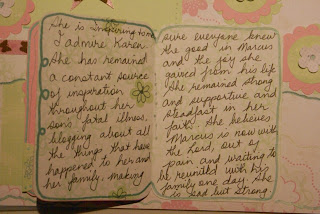 She is inspiring to me
I admire Karen
She has remained
a constant source
of inspiration
throughout her
sons fatal illness,
blogging about all
the things that have
happened to her and
her family, making
sure everyone knew
the good in Marcus
and the joy she
gained from his life
She remained strong
and supportive and
steadfast in her
faith. She believes
Marcus is now with
the Lord, out of
pain and waiting to
be reunited with his
family one day. She
is sad but strong.